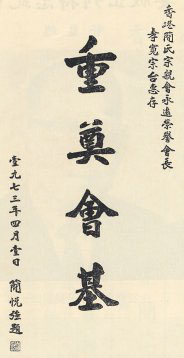 香港簡氏宗親會永遠榮譽會長
孝寬宗台惠存
重奠會基
壹九七三年四月壹日
簡悅強題